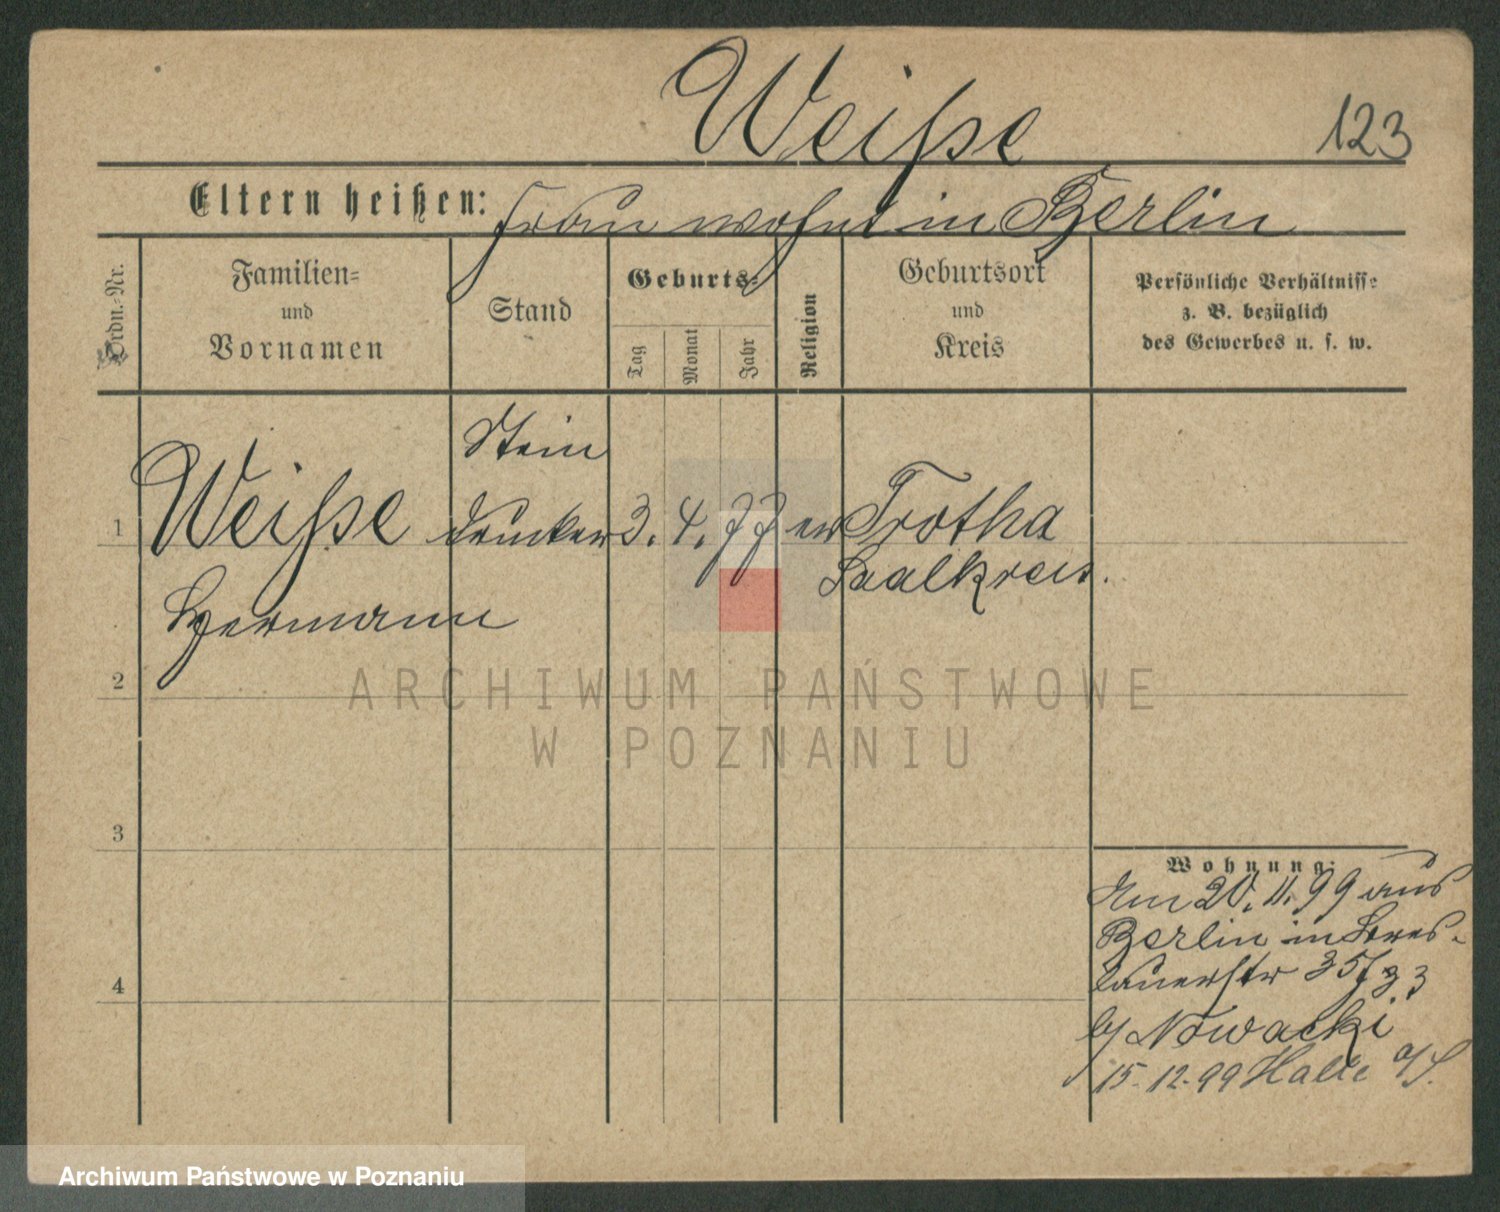 Weiße
123
Eltern heißen: Frau wohnt in Berlin
Ordn.-Nr.
Familien-
und
Vornamen
Stand
Geburts-
Tag
Monat
Jahr
Religion
Geburtsort
und
Kreis
Persönliche Verhältnisse
z. B. bezüglich
des Gewerbes u. s. w.
1
Weiße
Hermann
Stein
drucker
3. 4. 77
ev
Trotha
Saalkreis.
2
3
4
ARCHIWUM PAŃSTWOWE
W POZNANIU
Wohnung:
Am 20. 11. 99 aus
Berlin in Bres-
lauerstr 35
b/ Nowacki
15. 12. 99 Halle a/S.
Archiwum Państwowe w Poznaniu